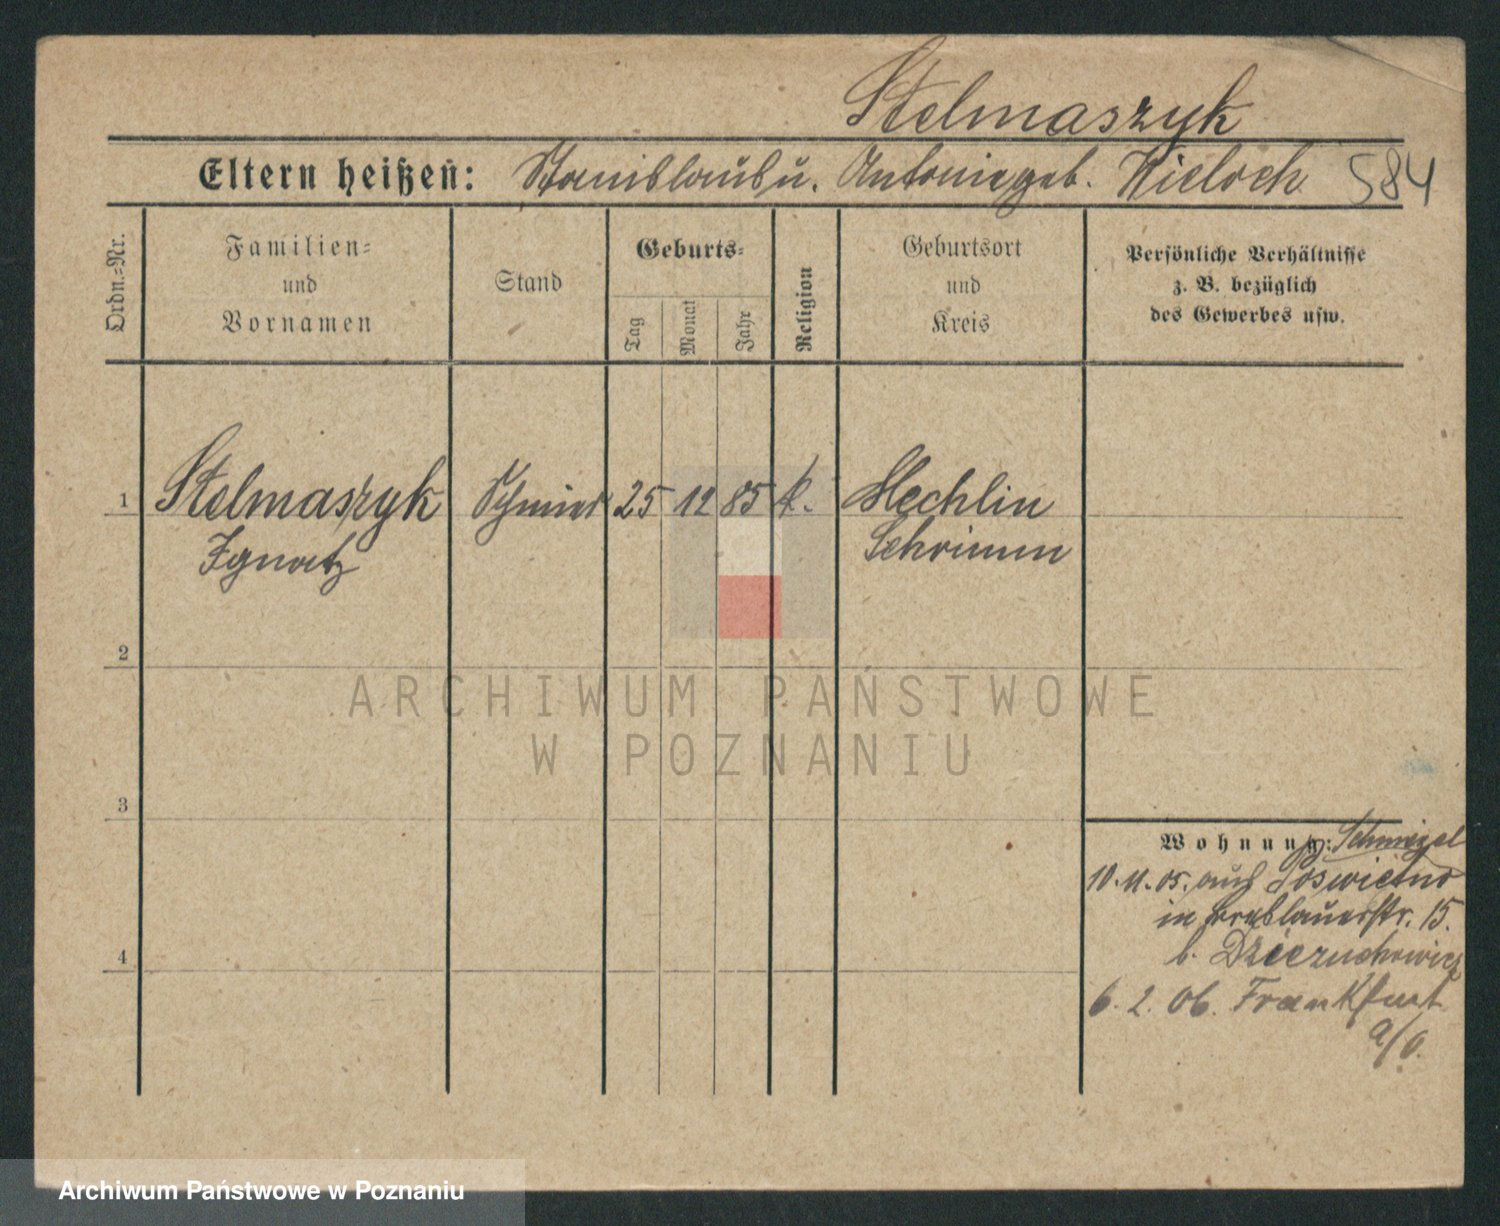 Stelmaszyk
Eltern heißen: Stanislaus u. Antonie geb. Wieloch 584
Ordn.=Nr.
Familien=
und
Vornamen
Stand
Geburts=
Tag
Monat
Jahr
Religion
Geburtsort
und
Kreis
Persönliche Verhältnisse
z. B. bezüglich
des Gewerbes usw.
1 Stelmaszyk Schmied 25 12 85 k. Mechlin
Ignatz Schrimm
2
ARCHIWUM PAŃSTWOWE
W POZNANIU
3
Wohnung: Schmiegel
10.11.05. aus
in Breslauerstr. 15.
b.
6. 2. 06. Frankfurt
a/O.
4
Archiwum Państwowe w Poznaniu